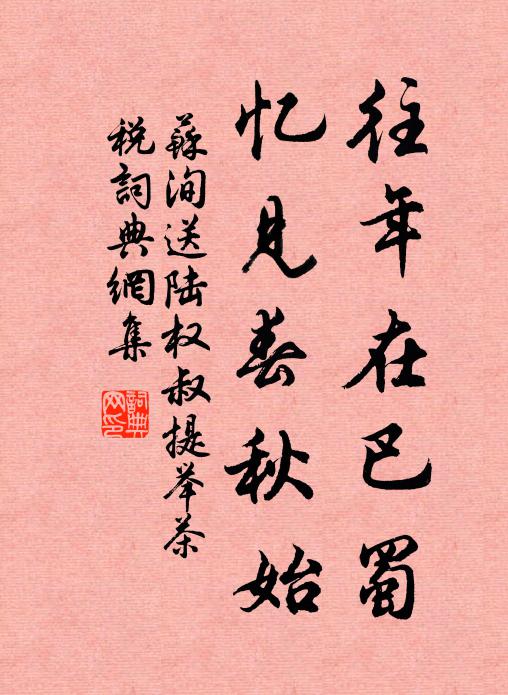 往年在巴蜀
忆见春秋始
蘇洵送陆权叔提举茶
税詞典網集
詞典网印